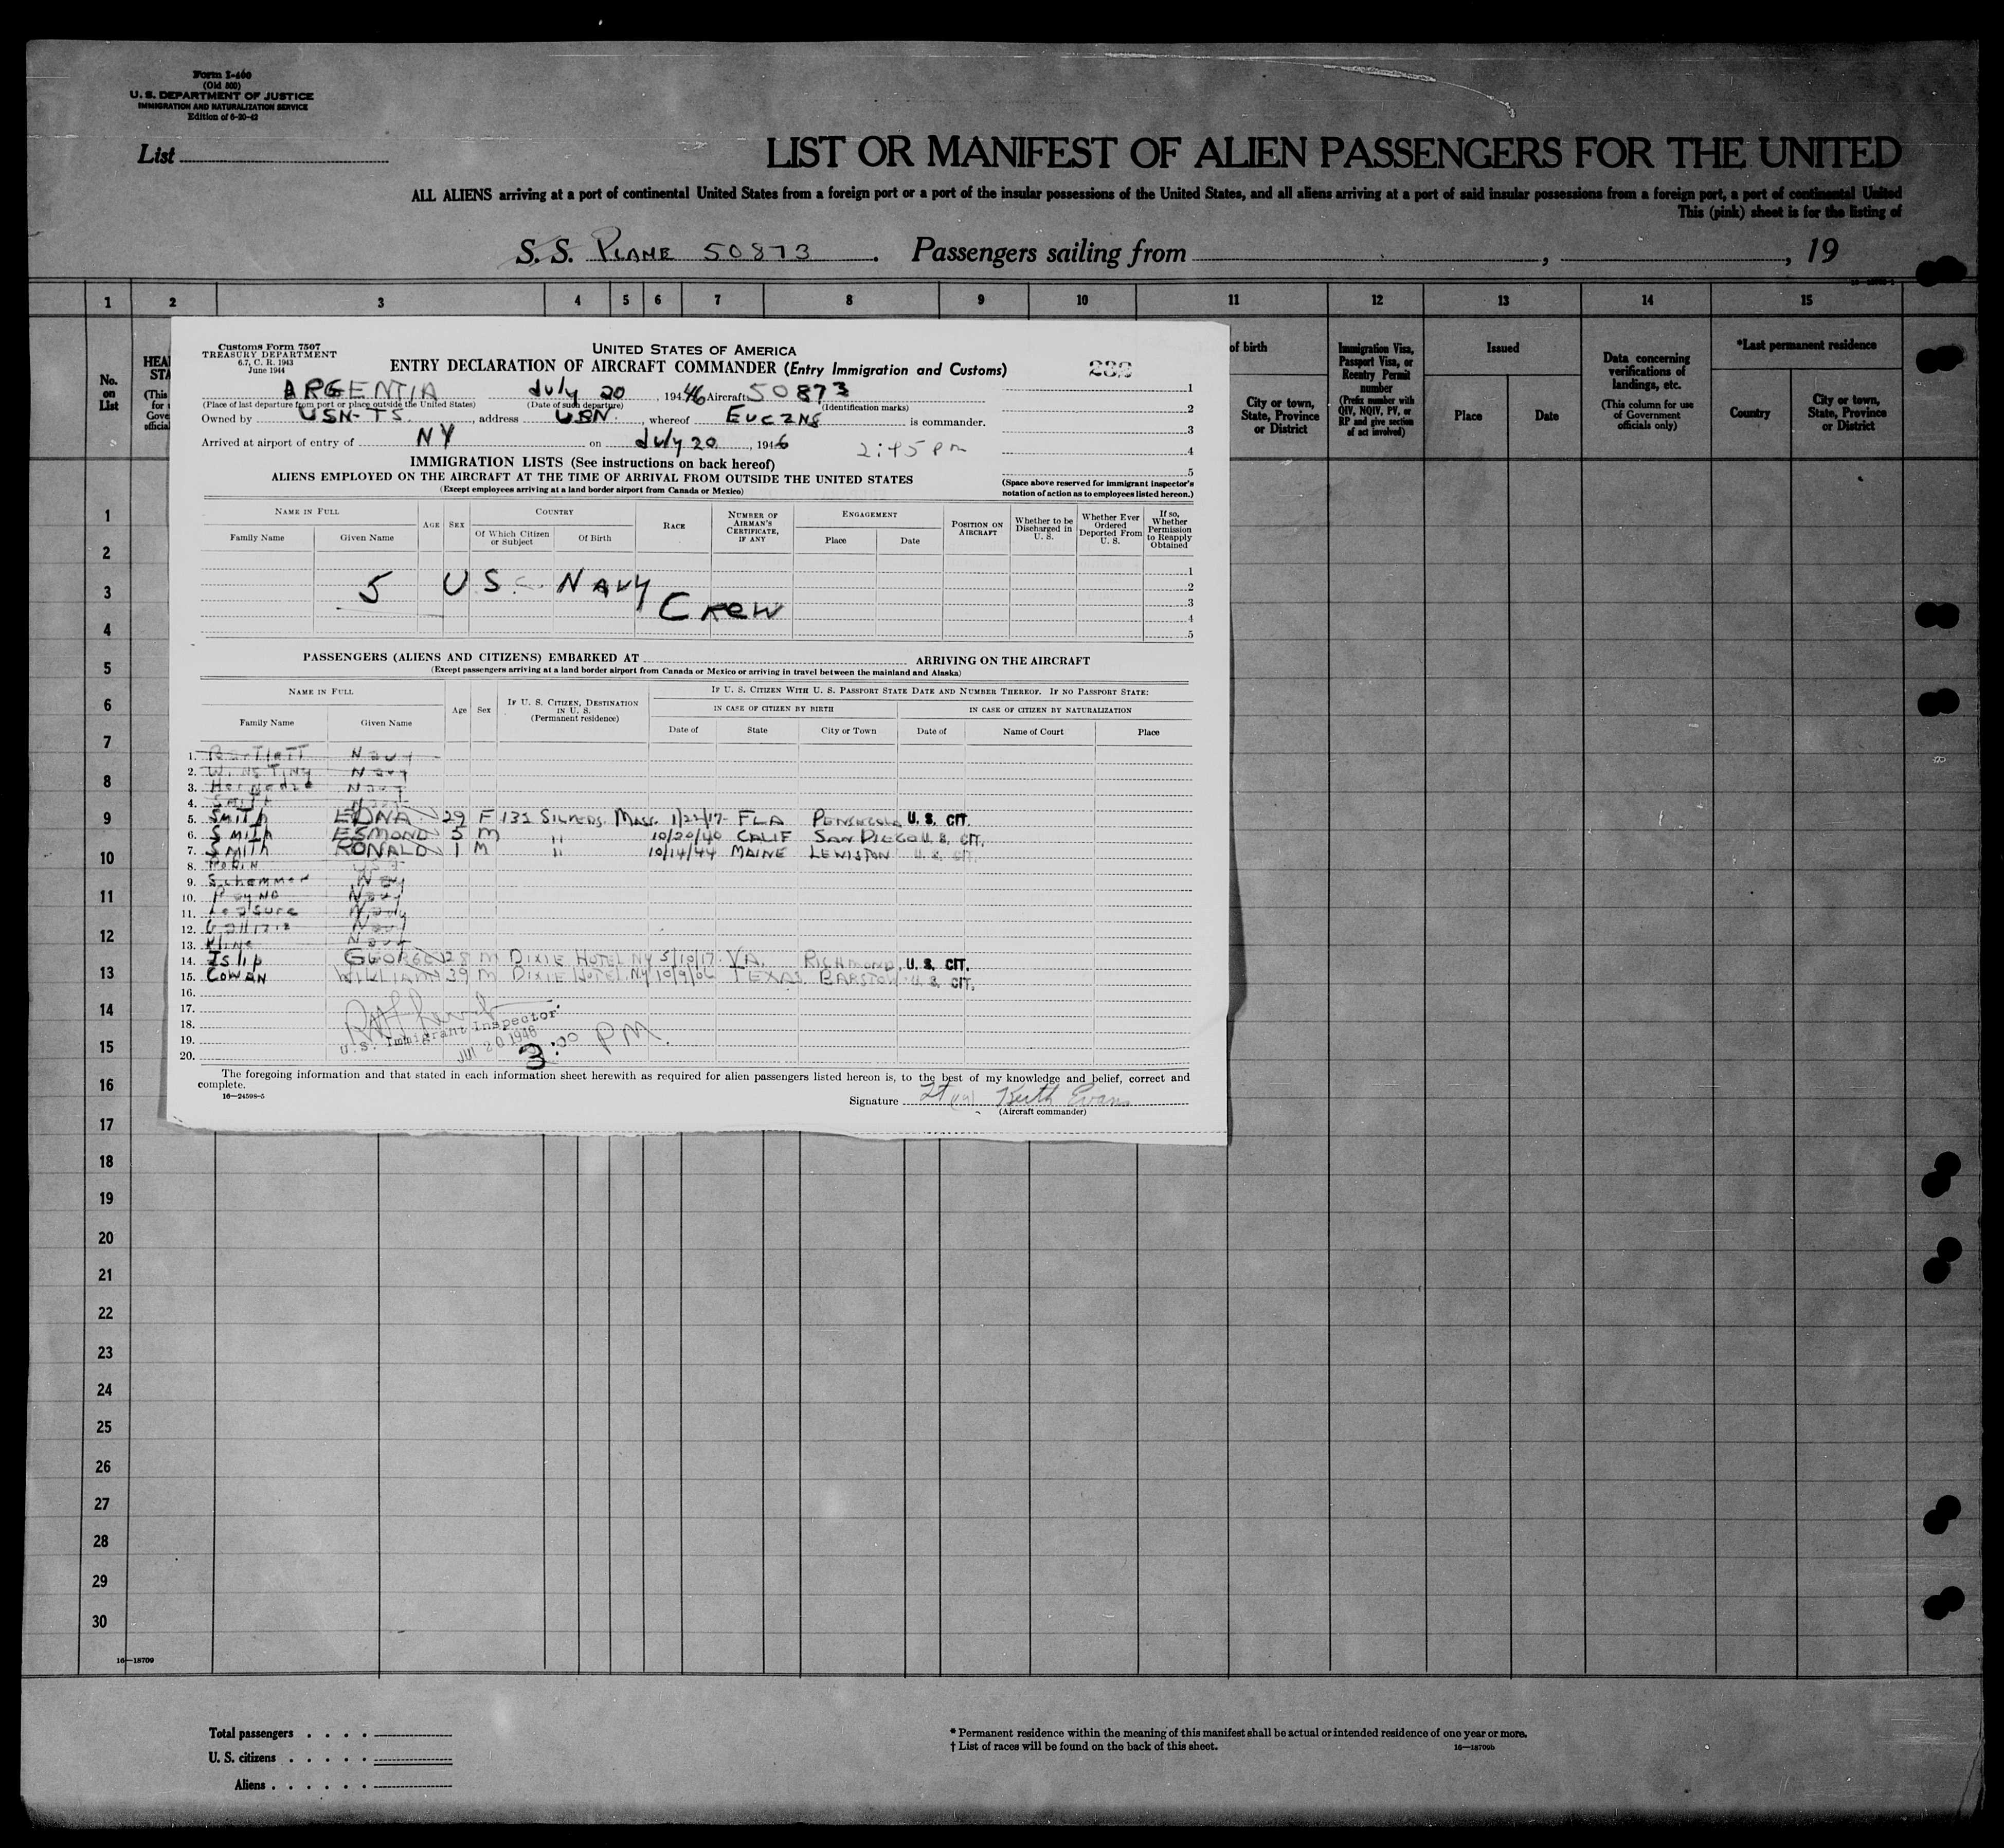 Form I-400
(Old 500)
U. S. DEPARTMENT OF JUSTICE
IMMIGRATION AND NATURALIZATION SERVICE
Edition of 6-20-42
List
LIST OR MANIFEST OF ALIEN PASSENGERS FOR THE UNITED
ALL ALIENS arriving at a port of continental United States from a foreign port or a port of the insular possessions of the United States, and all aliens arriving at a port of said insular possessions from a foreign port, a port of continental United
This (pink) sheet is for the listing of
S. S. PLANE 50873 . Passengers sailing from , , 19
1 2 3 4 5 6 7 8 9 10 11 12 13 14 15
No. on List
HEA
STA
(This
for
Gove
official
of birth
City or town, State, Province or District
Immigration Visa, Passport Visa, or Reentry Permit number
(Prefix number with QIV, NQIV, PV, or RP and give section of act involved)
Issued
Place Date
Data concerning verifications of landings, etc.
(This column for use of Government officials only)
*Last permanent residence
Country City or town, State, Province or District
Customs Form 7507
TREASURY DEPARTMENT
6.7, C. R. 1943
June 1944
UNITED STATES OF AMERICA
ENTRY DECLARATION OF AIRCRAFT COMMANDER (Entry Immigration and Customs)
ARGENTIA July 20, 1946 Aircraft 50873
(Place of last departure from port or place outside the United States) (Date of such departure) (Identification marks)
Owned by USN-TS, address USN, whereof is commander.
Arrived at airport of entry of NY on July 20, 1946 2:45 PM
1
2
3
4
5
(Space above reserved for immigrant inspector's notation of action as to employees listed hereon.)
IMMIGRATION LISTS (See instructions on back hereof)
ALIENS EMPLOYED ON THE AIRCRAFT AT THE TIME OF ARRIVAL FROM OUTSIDE THE UNITED STATES
(Except employees arriving at a land border airport from Canada or Mexico)
NAME IN FULL
Family Name Given Name
AGE SEX
COUNTRY
Of Which Citizen or Subject Of Birth
RACE
NUMBER OF AIRMAN'S CERTIFICATE, IF ANY
ENGAGEMENT
Place Date
POSITION ON AIRCRAFT
Whether to be Discharged in U. S.
Whether Ever Ordered Deported From U. S.
If so, Whether Permission to Reapply Obtained
1
2
3
4
5
5 US NAVY
Crew
PASSENGERS (ALIENS AND CITIZENS) EMBARKED AT ARRIVING ON THE AIRCRAFT
(Except passengers arriving at a land border airport from Canada or Mexico or arriving in travel between the mainland and Alaska)
NAME IN FULL
Family Name Given Name
Age Sex
IF U. S. CITIZEN, DESTINATION IN U. S.
(Permanent residence)
IF U. S. CITIZEN WITH U. S. PASSPORT STATE DATE AND NUMBER THEREOF. IF NO PASSPORT STATE:
IN CASE OF CITIZEN BY BIRTH IN CASE OF CITIZEN BY NATURALIZATION
Date of State City or Town Date of Name of Court Place
1. Bartlett Navy
2. Navy
3. Navy
4. Smith Navy
5. Smith EDNA 29 F 131 Mass. 1/22/17 FLA U. S. CIT.
6. Smith ESMOND 5 M " 10/20/40 CALIF SAN DIEGO U. S. CIT.
7. Smith RONALD 1 M " 10/14/44 MAINE LEWISTON U. S. CIT.
8.
9. Navy
10. Navy
11. Leasure Navy
12. Navy
13. Kline Navy
14. Islip GEORGE 28 M DIXIE HOTEL NY 5/10/17 VA. RICHMOND U. S. CIT.
15. COWAN WILLIAM 39 M DIXIE HOTEL NY 10/9/06 TEXAS BARSTOW U. S. CIT.
16.
17.
18.
19.
20.
U. S. Immigrant Inspector
JUL 20 1946
3:00 PM.
The foregoing information and that stated in each information sheet herewith as required for alien passengers listed hereon is, to the best of my knowledge and belief, correct and
complete.
16—24598-5
Signature Lt (jg) Keith Evans
(Aircraft commander)
1
2
3
4
5
6
7
8
9
10
11
12
13
14
15
16
17
18
19
20
21
22
23
24
25
26
27
28
29
30
16—18709
Total passengers . . . .
U. S. citizens . . . . .
Aliens . . . . . .
* Permanent residence within the meaning of this manifest shall be actual or intended residence of one year or more.
† List of races will be found on the back of this sheet.
16—18709b